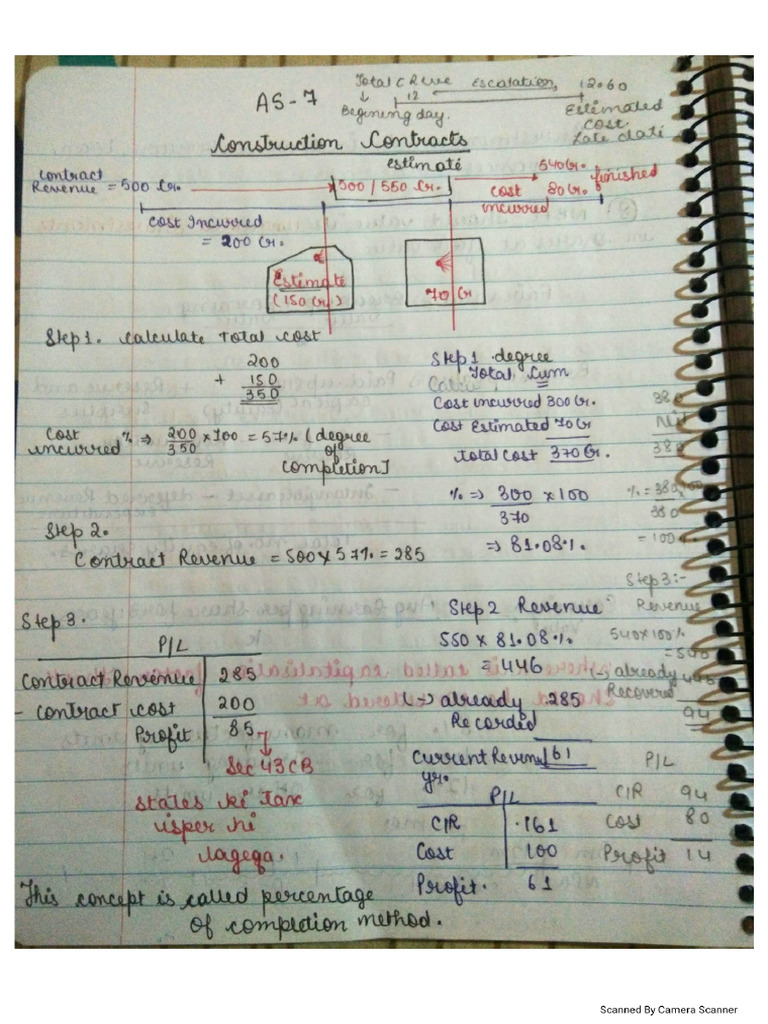 AS-7
Total C Reve Escalation, 12.60
↓ 12
Begining day. Estimated
cost
Late date
Construction Contracts
estimate
Contract
Revenue = 500 Cr. 500 / 550 Cr. 540 Cr. finished
cost 80 Cr.
incurred
Cost Incurred
= 200 Cr.
Estimate
(150 Cr.)
70 Cr
Step 1. Calculate Total Cost
200
+ 150
350
Cost
incurred % ⇒ 200/350 × 100 = 57% (degree
of
completion]
Step 2.
Contract Revenue = 500 × 57% = 285
Step 3.
P/L
Contract Revenue 285
- Contract cost 200
Profit 85
↓
Sec 43CB
States ki Tax
isper hi
lagega.
This concept is called percentage
of completion method.
Step 1 degree
Total Cum
Cost incurred 300 Cr.
Cost Estimated 70 Cr
Total Cost 370 Cr.
% ⇒ 300 × 100
370
⇒ 81.08%.
Step 2 Revenue
550 × 81.08%
= 446
(-) already 285
Recorded
Current Revenue 161
yr.
P/L
C/R 161
Cost 100
Profit. 61
380
Nil
380
% = 380 × 100
380
= 100%
Step 3:-
Revenue
540 × 100%
= 540
(-) already 446
Recovered
94
P/L
C/R 94
Cost 80
Profit 14
Scanned By Camera Scanner